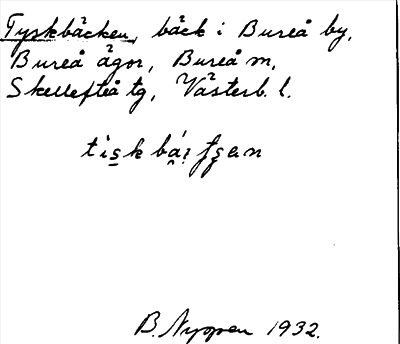 Tyskbäcken, bäck i Bureå by,
Bureå ägor, Bureå m,
Skellefteå tg, Västerb. l.
B. Nygren 1932.